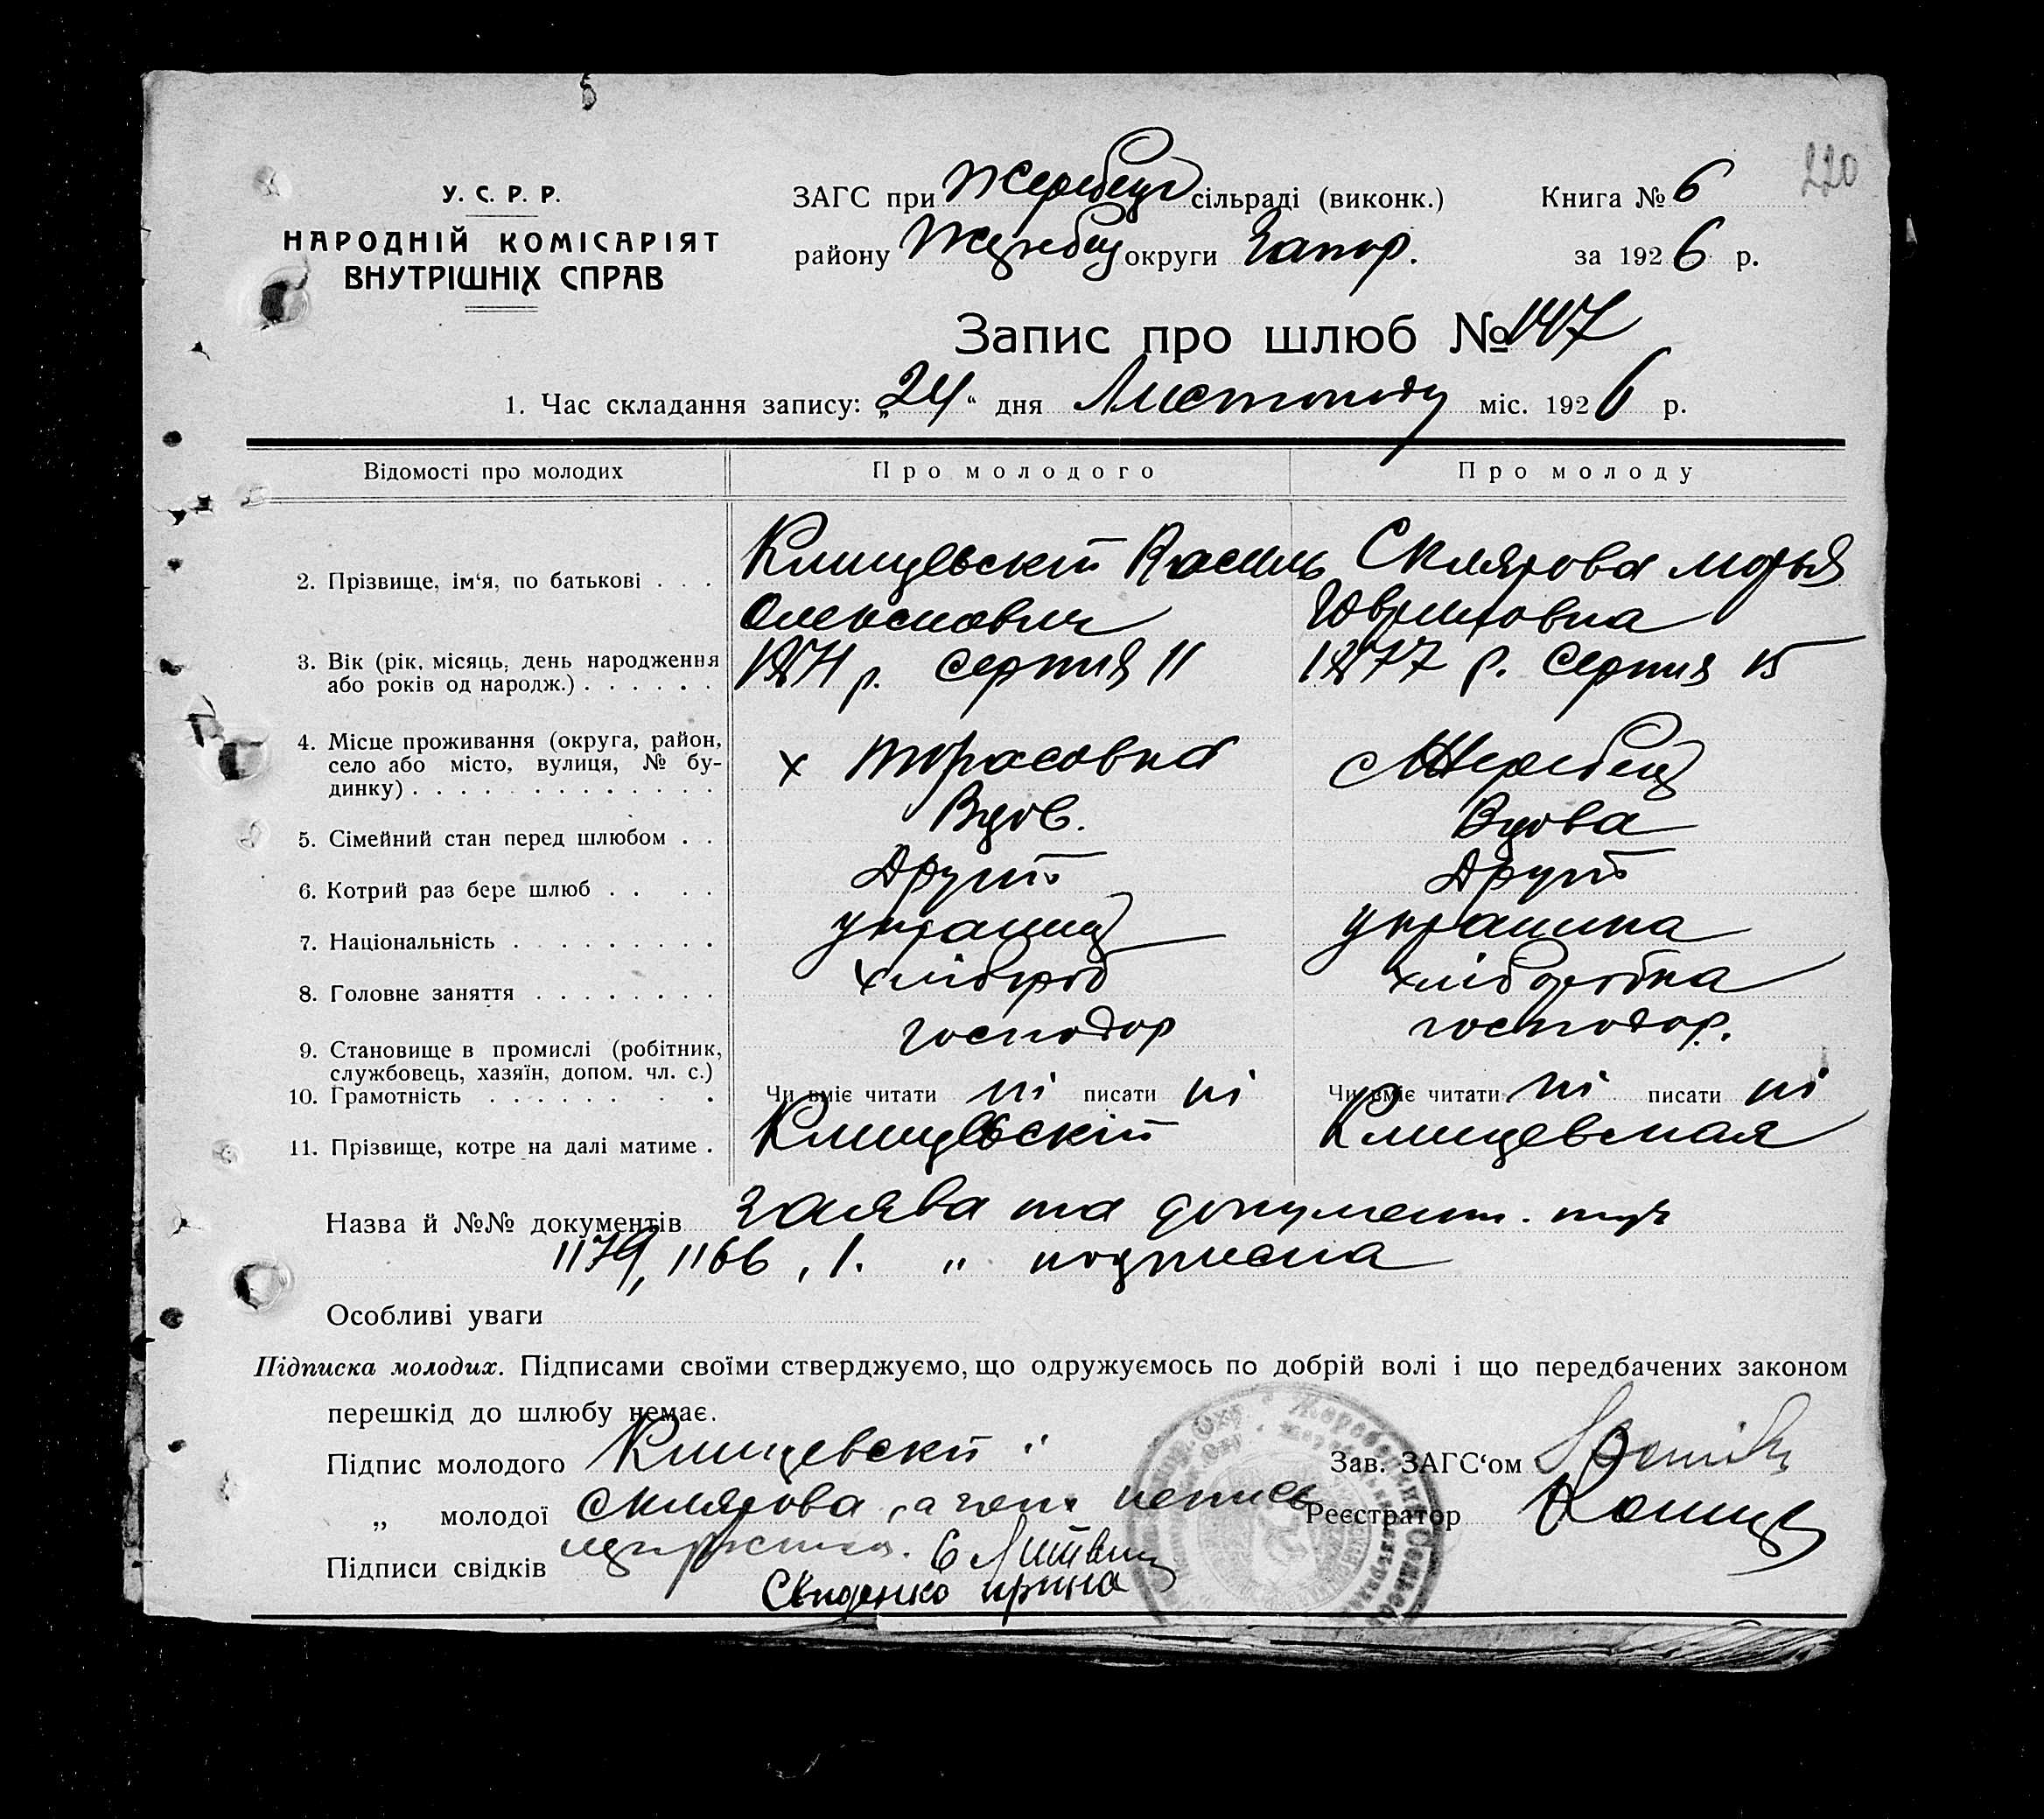 220
У. С. Р. Р.
НАРОДНІЙ КОМІСАРІЯТ
ВНУТРІШНІХ СПРАВ
ЗАГС при Жеребець сільраді (виконк.)
Книга № 6
району Жеребец округи Запор.
за 1926 р.
Запис про шлюб № 147
1. Час складання запису: „24“ дня Листопаду міс. 1926 р.
Відомості про молодих Про молодого Про молоду
2. Прізвище, ім‘я, по батькові . . . Клищевскій Василь Склярова Марья
Олексиович
3. Вік (рік, місяць, день народження або років од народж.) . . . . . . 1871 р. Серпня 11 1877 р. Серпня 15
4. Місце проживання (округа, район,
село або місто, вулиця, № бу-
динку) . . . . . . . . . . . . . х Тарасовка с Жеребец
5. Сімейний стан перед шлюбом . . Вдов. Вдова
6. Котрий раз бере шлюб . . . . Другий Другий
7. Національність . . . . . . . . . украинец украинка
8. Головне заняття . . . . . . . . хлібороб хліборобка
9. Становище в промислі (робітник,
службовець, хазяїн, допом. чл. с.) господар господар.
10. Грамотність . . . . . . . . Чи вміє читати ні писати ні Чи вміє читати ні писати ні
11. Прізвище, котре на далі матиме . Клищевскій Клищевская
Назва й №№ документів заява та документ.
1179, 1166, 1. „ подписка
Особливі уваги
Підписка молодих. Підписами своїми стверджуємо, що одружуємось по добрій волі і що передбачених законом
перешкід до шлюбу немає.
Підпис молодого Клищевскі й
Зав. ЗАГС‘ом
„ молодої Склярова, а за
Реєстратор
Підписи свідків
Свиденко Ирина